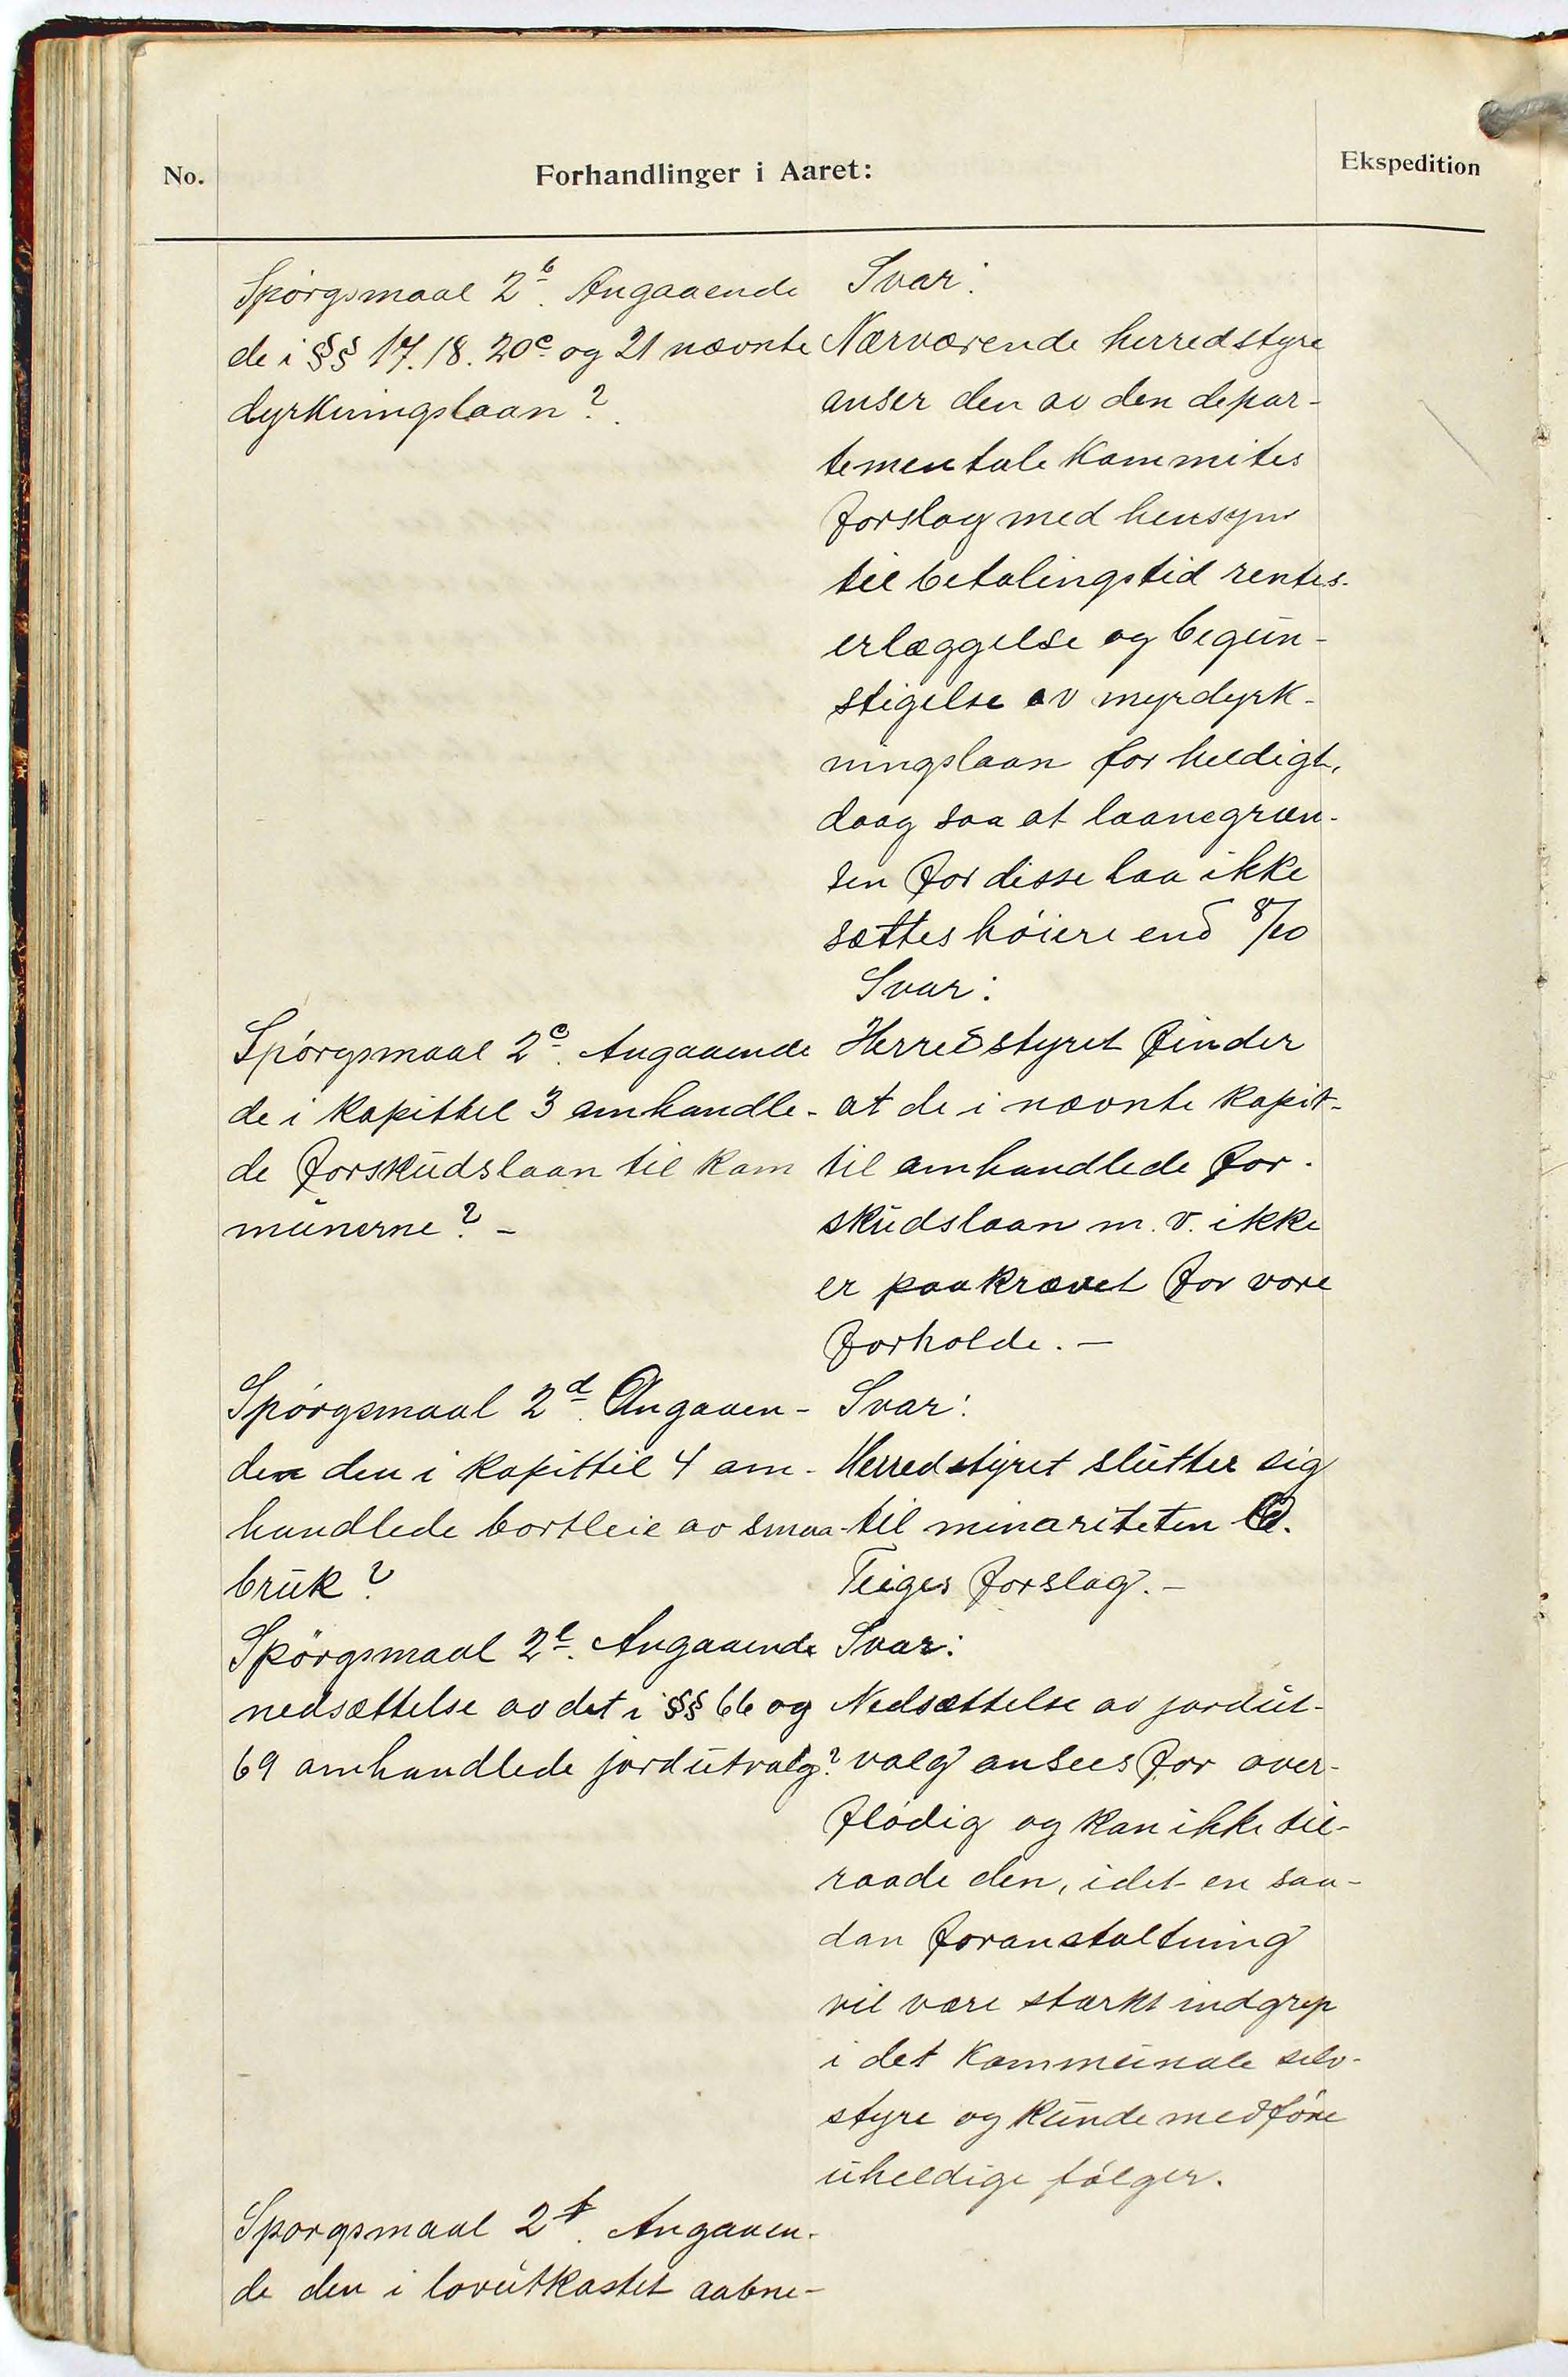 No.
Forhandlinger i Aaret:
Ekspedition
Spørgsmaal 2b. Angaaende
de i §§ 17. 18. 20c og 21 nævnte
dyrkningslaan?
Svar:
Nærværende herredstyre
anser den av den depar-
tementale kommites
forslag med hensyn
til betalingstid rentes-
erlæggelse og begun-
stigelse av myrdyrk-
ningslaan for heldigt,
doog saa at laanegræn-
sen for disse laa ikke
sættes høiere end 8/10
Spørgsmaal 2c. Angaaende
de i kapittel 3 omhandle-
de forskudslaan til kom
munerne? -
Svar:
Herredstyret finder
at de i nævnte kapit-
til omhandlede for-
skudslaan m. v. ikke
er paakrævet for vore
forholde. -
Spørgsmaal 2d. Angaaen-
den den i kapittil 4 om-
handlede bortleie av smaa-
bruk?
Svar:
Herredstyret slutter sig
til minoriteten
Teiges forslag. -
Spørgsmaal 2e. Angaaende
nedsættelse av det i §§ 66 og
69 omhandlede jordutvalg?
Svar:
Nedsættelse av jordut-
valg ansees for over-
flødig og kan ikke til-
raade den, idet en saa-
dan foranstaltning
vil være stærkt indgrep
i det kommunale selv-
styre og kunde medføre
uheldige følger.
Sporgsmaal 2f. Angaaen-
de den i lovutkastet aabne-